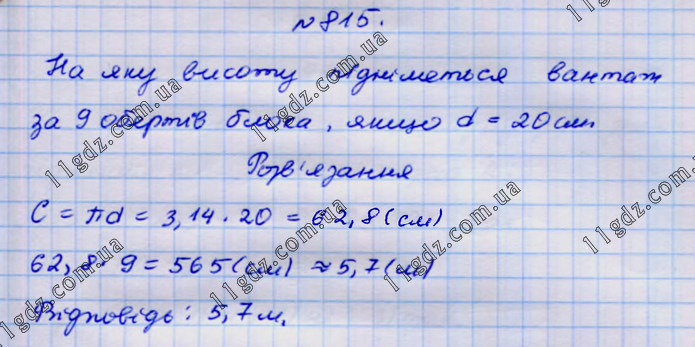 №815.
На яку висоту підніметься вантаж
за 9 обертів блока, якщо d = 20 см
Розв'язання
C = πd = 3,14 · 20 = 62,8 (см)
62,8 · 9 = 565 (см) ≈ 5,7 (м)
Відповідь: 5,7 м.
11gdz.com.ua
11gdz.com.ua
11gdz.com.ua
11gdz.com.ua
11gdz.com.ua
11gdz.com.ua
11gdz.com.ua